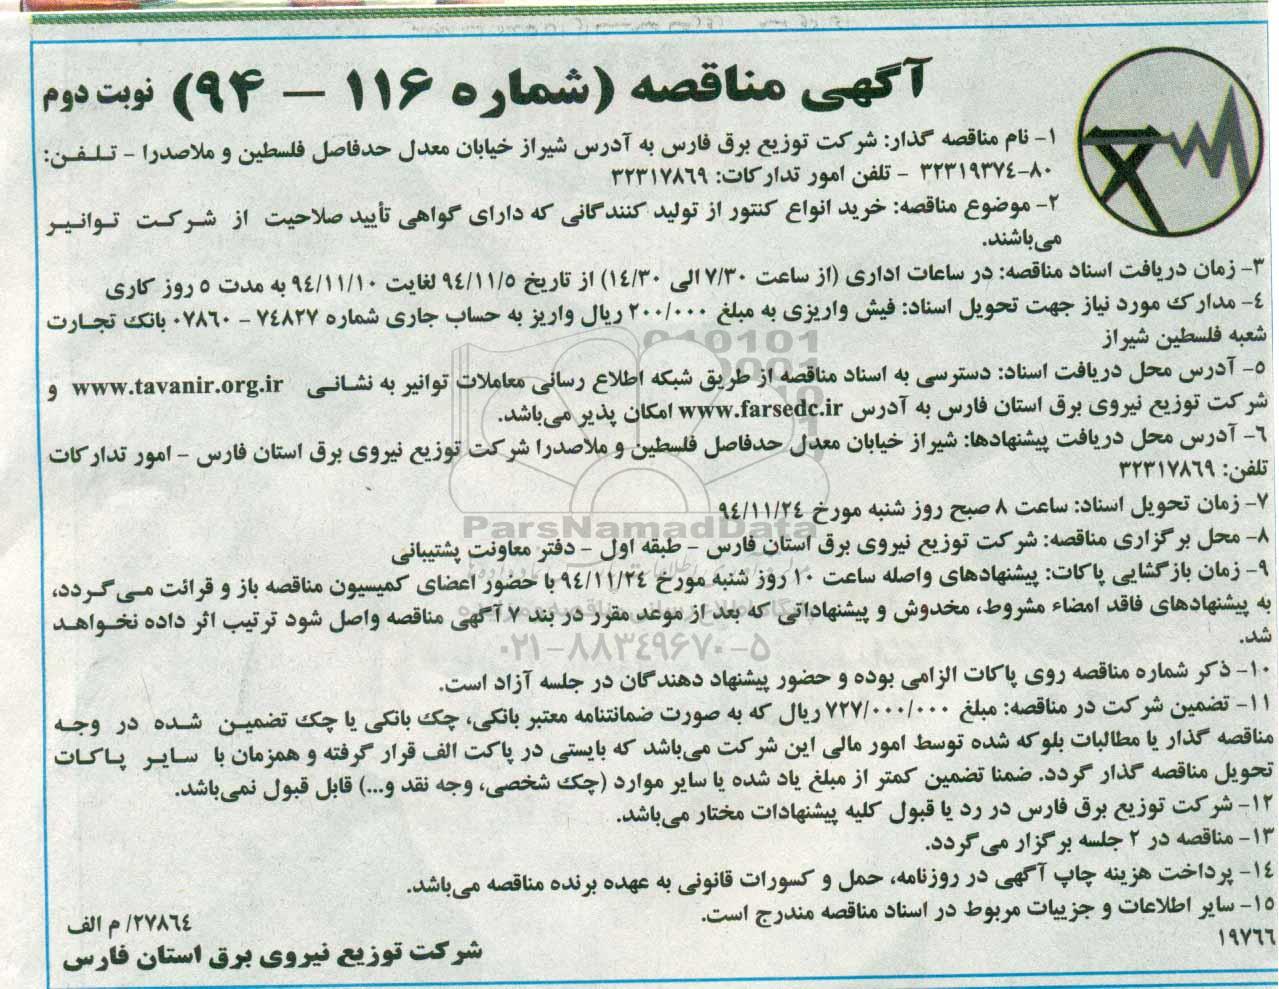 آگهی مناقصه (شماره ۱۱۶ – ۹۴) نوبت دوم
۱- نام مناقصه گذار: شرکت توزیع برق فارس به آدرس شیراز خیابان معدل حدفاصل فلسطین و ملاصدرا – تلفن:
۸۰-۳۲۳۱۹۳۷۴ – تلفن امور تدارکات: ۳۲۳۱۷۸۶۹
۲- موضوع مناقصه: خرید انواع کنتور از تولید کنندگانی که دارای گواهی تأیید صلاحیت از شرکت توانیر
می‌باشند.
۳- زمان دریافت اسناد مناقصه: در ساعات اداری (از ساعت ۷/۳۰ الی ۱۴/۳۰) از تاریخ ۹۴/۱۱/۵ لغایت ۹۴/۱۱/۱۰ به مدت ۵ روز کاری
۴- مدارک مورد نیاز جهت تحویل اسناد: فیش واریزی به مبلغ ۲۰۰/۰۰۰ ریال واریز به حساب جاری شماره ۷۴۸۲۷ – ۰۷۸۶۰ بانک تجارت
شعبه فلسطین شیراز
۵- آدرس محل دریافت اسناد: دسترسی به اسناد مناقصه از طریق شبکه اطلاع رسانی معاملات توانیر به نشانی www.tavanir.org.ir و
شرکت توزیع نیروی برق استان فارس به آدرس www.farsedc.ir امکان پذیر می‌باشد.
۶- آدرس محل دریافت پیشنهادها: شیراز خیابان معدل حدفاصل فلسطین و ملاصدرا شرکت توزیع نیروی برق استان فارس – امور تدارکات
تلفن: ۳۲۳۱۷۸۶۹
۷- زمان تحویل اسناد: ساعت ۸ صبح روز شنبه مورخ ۹۴/۱۱/۲۴
۸- محل برگزاری مناقصه: شرکت توزیع نیروی برق استان فارس – طبقه اول – دفتر معاونت پشتیبانی
۹- زمان بازگشایی پاکات: پیشنهادهای واصله ساعت ۱۰ روز شنبه مورخ ۹۴/۱۱/۲۴ با حضور اعضای کمیسیون مناقصه باز و قرائت می‌گردد،
به پیشنهادهای فاقد امضاء مشروط، مخدوش و پیشنهاداتی که بعد از موعد مقرر در بند ۷ آگهی مناقصه واصل شود ترتیب اثر داده نخواهد
شد.
۱۰- ذکر شماره مناقصه روی پاکات الزامی بوده و حضور پیشنهاد دهندگان در جلسه آزاد است.
۱۱- تضمین شرکت در مناقصه: مبلغ ۷۲۷/۰۰۰/۰۰۰ ریال که به صورت ضمانتنامه معتبر بانکی، چک بانکی یا چک تضمین شده در وجه
مناقصه گذار یا مطالبات بلوکه شده توسط امور مالی این شرکت می‌باشد که بایستی در پاکت الف قرار گرفته و همزمان با سایر پاکات
تحویل مناقصه گذار گردد. ضمنا تضمین کمتر از مبلغ یاد شده یا سایر موارد (چک شخصی، وجه نقد و...) قابل قبول نمی‌باشد.
۱۲- شرکت توزیع برق فارس در رد یا قبول کلیه پیشنهادات مختار می‌باشد.
۱۳- مناقصه در ۲ جلسه برگزار می‌گردد.
۱۴- پرداخت هزینه چاپ آگهی در روزنامه، حمل و کسورات قانونی به عهده برنده مناقصه می‌باشد.
۱۵- سایر اطلاعات و جزییات مربوط در اسناد مناقصه مندرج است.
۲۷۸۶۴/ م الف
۱۹۷۶۶
شرکت توزیع نیروی برق استان فارس
ParsNamadData
۰۲۱-۸۸۳۴۹۶۷۰-۵